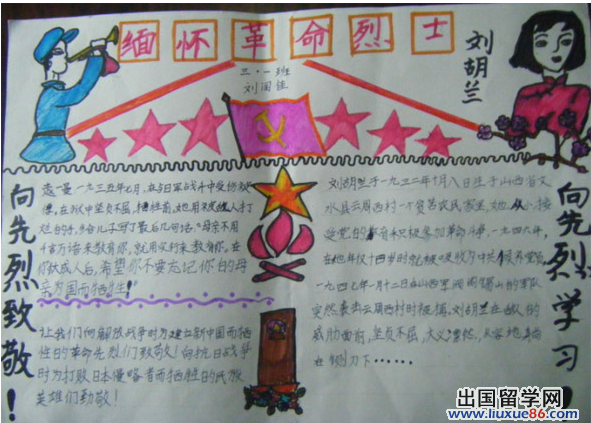 缅怀革命烈士
三·一班
刘润佳
刘胡兰
向先烈致敬!
赵一曼一九三五年七月,在与日军战斗中受伤被
俘,在狱中坚贞不屈,牺牲前,她用
烂的手,给儿子写了最后几句话:“母亲不用
千言万语来教育你,就用实行来教育你。在
你长成人后,希望你不要忘记你的母
亲为国而牺牲!”
让我们向解放战争时为建立新中国而牺
牲的革命先烈们致敬!向抗日战争
时为打败日本侵略者而牺牲的民族
英雄们致敬!
刘胡兰于一九三二年十月八日生于山西省文
水县云周西村一个贫苦农民家里,她从小接
受党的教育积极参加革命斗争,一九四六年,
在她年仅十四岁时就被吸收为中共候补党员,
一九四七年一月十二日在山西军阀阎锡山的军队
突然袭击云周西村时被捕,刘胡兰在敌人的
威胁面前,坚贞不屈,大义凛然,从容地躺
在铡刀下……
向先烈学习!
出国留学网
www.liuxue86.com